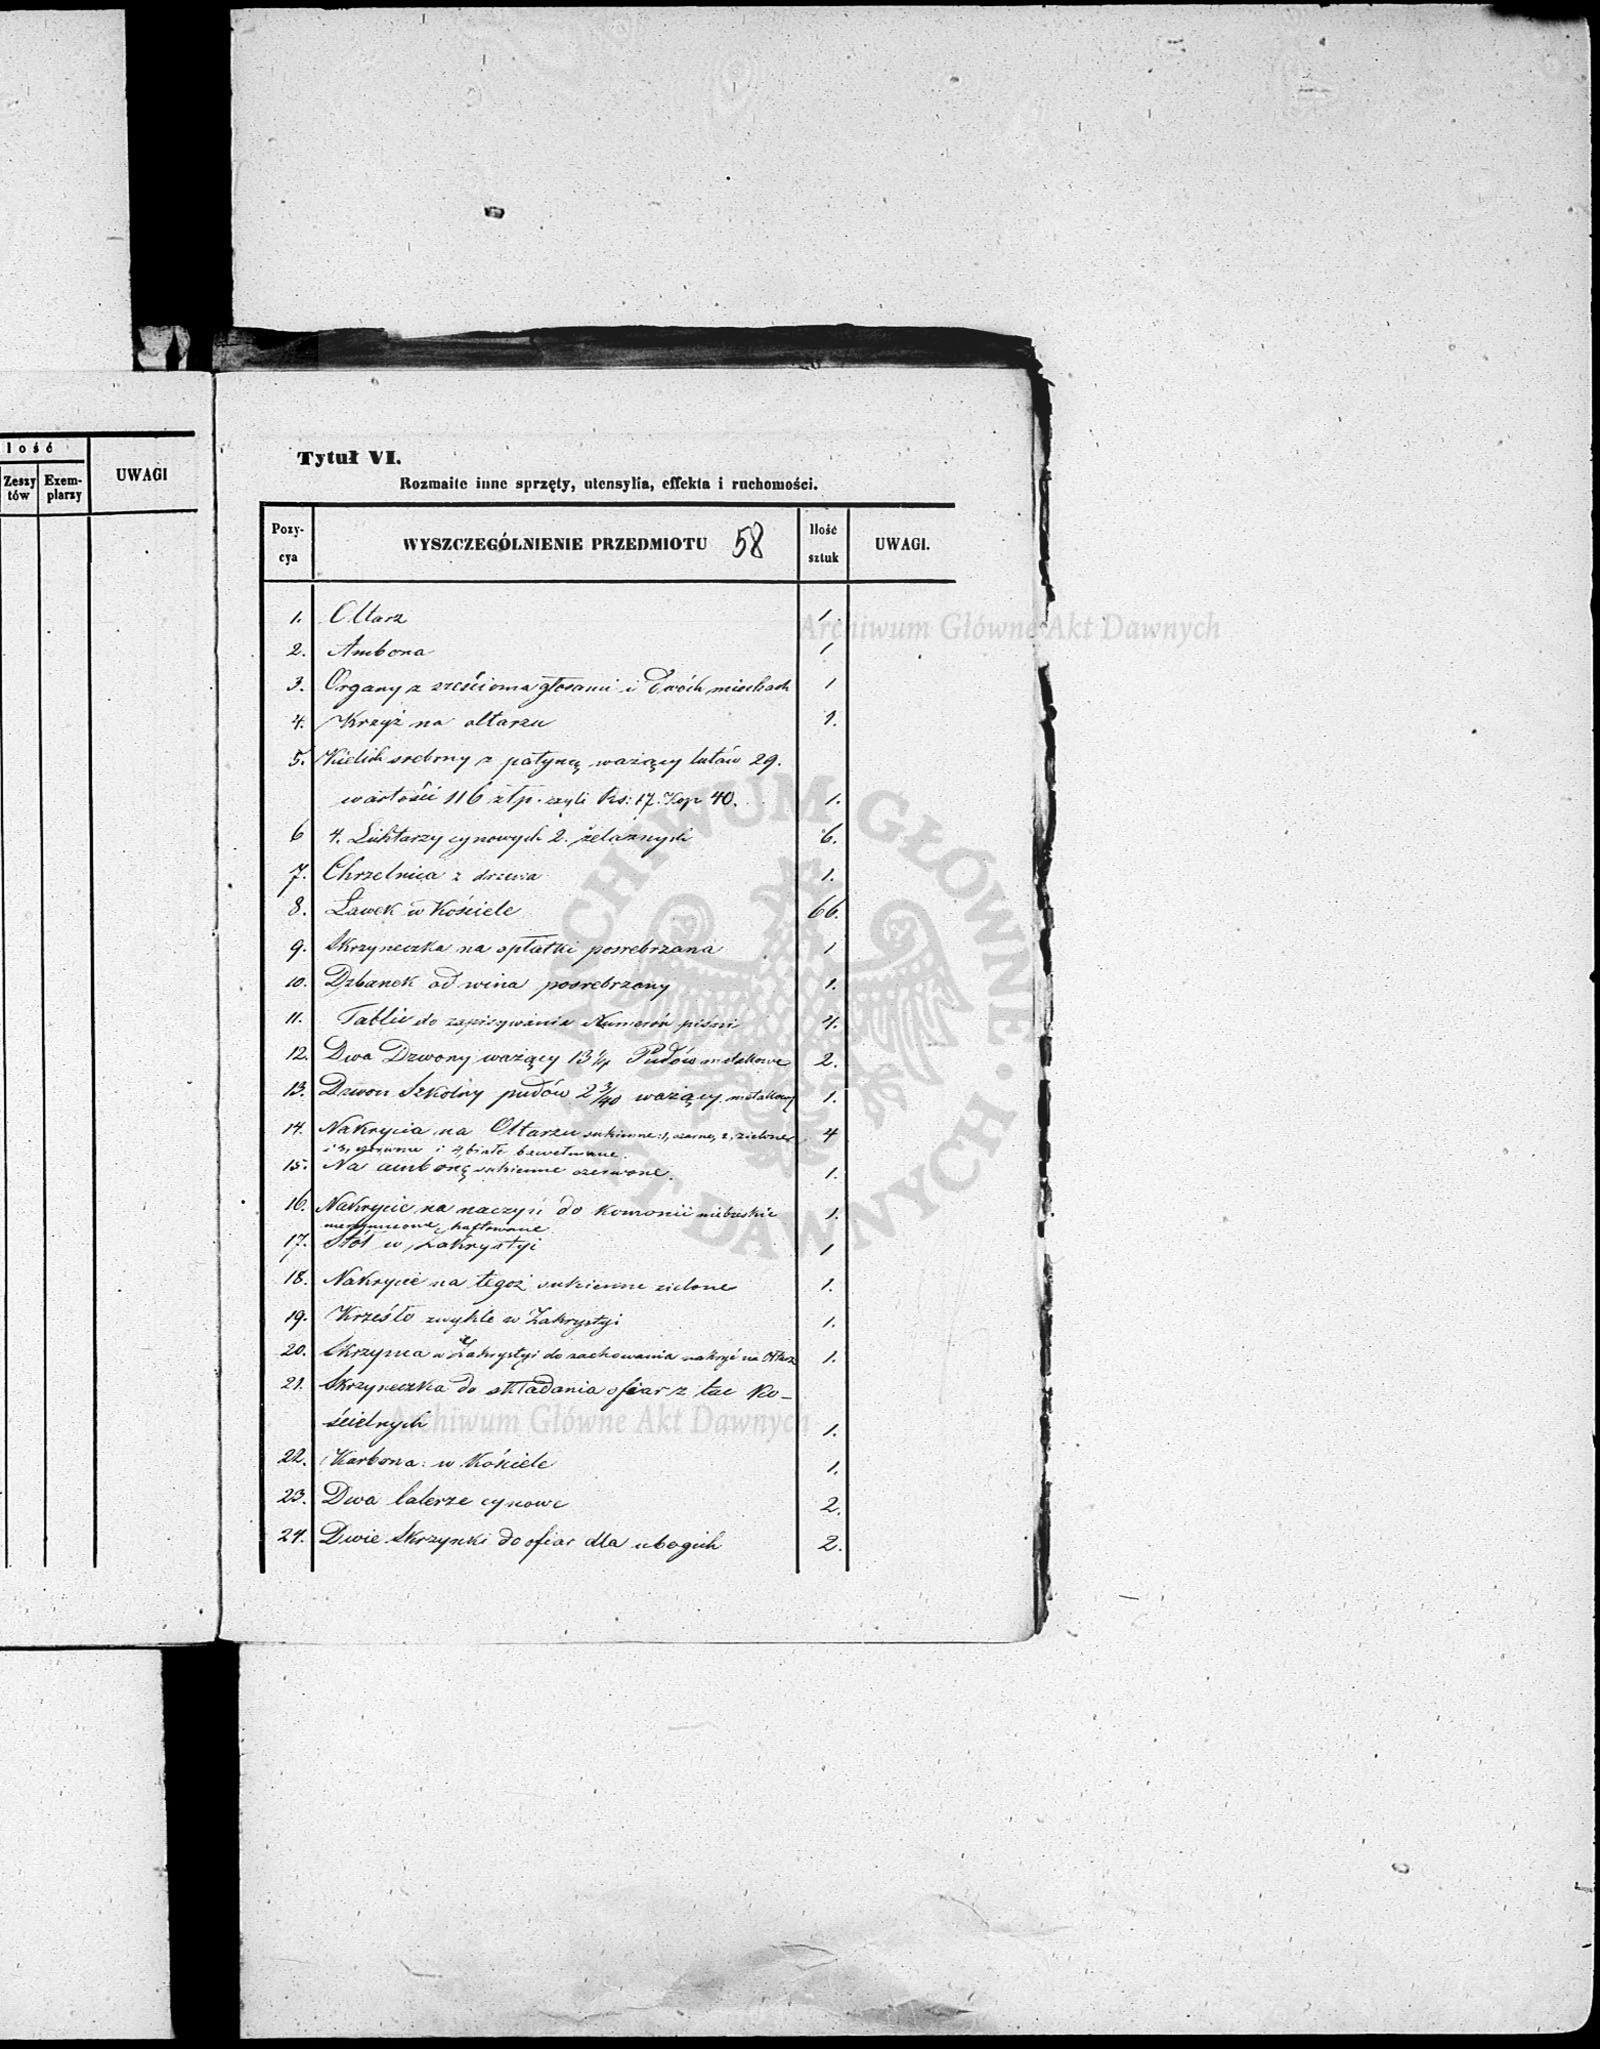 Ilość
Zeszytów
Exemplarzy
UWAGI
Tytuł VI.
Rozmaite inne sprzęty, utensylia, effekta i ruchomości.
Pozycya
WYSZCZEGÓLNIENIE PRZEDMIOTU 58
Ilość sztuk
UWAGI.
1. Ołtarz 1.
2. Ambona 1
3. Organy z sześcioma głosami i dwóch miechach 1
4. Krzyż na ołtarzu 1.
5. Kielich srebrny z patyną ważący łutów 29.
wartości 116 złp. czyli Rs: 17. Kop 40. 1.
6 4. Lichtarzy cynowych 2. żelaznych 6.
7. Chrzelnica z drzewa 1.
8. Ławek w Kościele 66.
9. Skrzyneczka na opłatki posrebrzana 1
10. Dzbanek od wina posrebrzany 1.
11. Tablic do zapisywania Numerów pieśni 4.
12. Dwa Dzwony ważący 13 1/4 Pudów metalowe 2.
13. Dzwon Szkolny pudów 2 3/40 ważący metalowy 1.
14. Nakrycia na Ołtarzu sukienne: 1, czarne, 2, zielone 4
i 3, czerwone i 4, białe bawełniane.
15. Na ambonę sukienne czerwone. 1.
16. Nakrycie na naczyń do Komonii niebieskie 1.
haftowane
17. Stół w Zakrystyi 1
18. Nakrycie na tegoż sukienne zielone 1.
19. Krzesło zwykłe w Zakrystyi 1.
20. Skrzynia w Zakrystyi do zachowania nakryć na Ołtarz 1.
21. Skrzyneczka do składania ofiar z tac Ko-
ścielnych 1.
22. Karbona w Kościele 1.
23. Dwa talerze cynowe 2.
24. Dwie Skrzynki do ofiar dla ubogich 2.
Archiwum Główne Akt Dawnych
ARCHIWUM GŁÓWNE · AKT DAWNYCH ·
Archiwum Główne Akt Dawnych